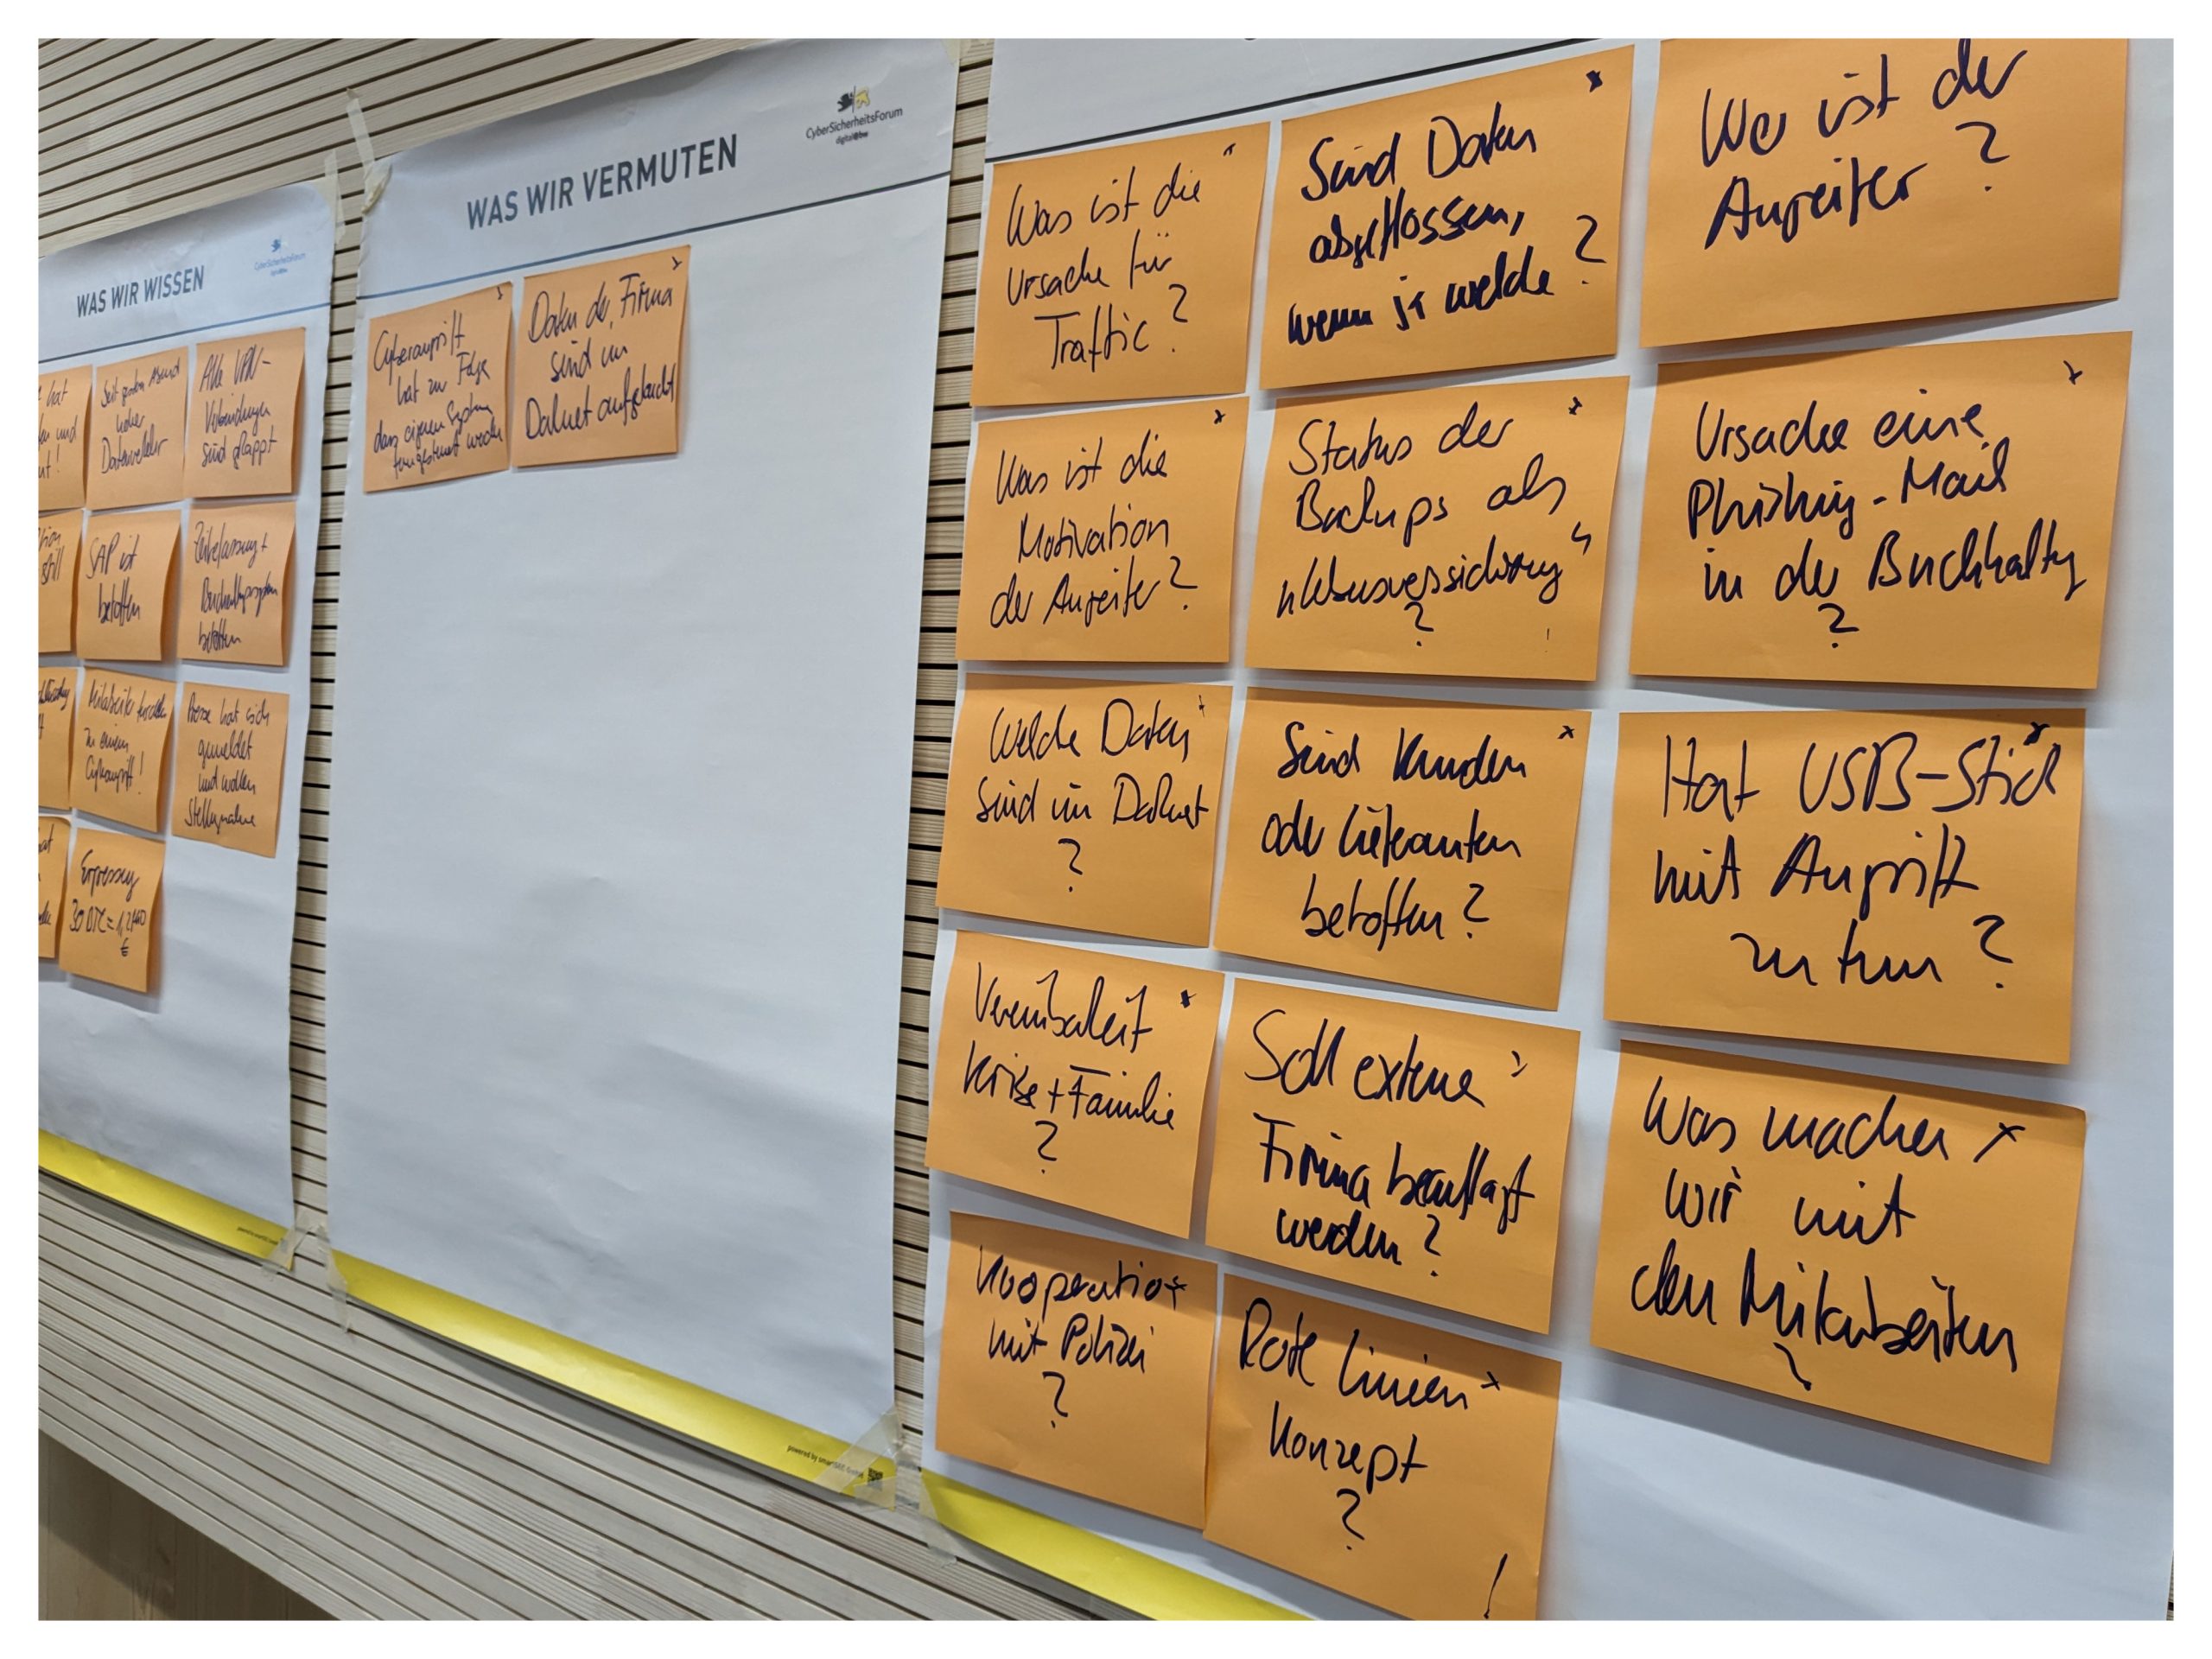 WAS WIR WISSEN
CyberSicherheitsForum
hat
und
Seit gestern Abend
hoher
Datenverkehr
Alle VPN-
Verbindungen
sind gekappt
still
SAP ist
betroffen
Zeiterfassung +
betroffen
Mitarbeiter
zu einem
Cyberangriff!
Presse hat sich
gemeldet
und wollen
Stellungnahme
Erpressung
30 BTC =
€
WAS WIR VERMUTEN
CyberSicherheitsForum
digital@bw
Cyberangriff
hat zur Folge
dass eigenen Systeme
ferngesteuert werden
Daten der Firma
sind im
Darknet aufgetaucht
powered by
Was ist die
Ursache für
Traffic?
Sind Daten
abgeflossen,
wenn ja welche?
Wer ist der
Angreifer?
Was ist die
Motivation
der Angreifer?
Status der
Backups als
"Lebensversicherung"
?
Ursache eine
Phishing-Mail
in der Buchhaltg
?
Welche Daten
sind im Darknet
?
Sind Kunden
oder Lieferanten
betroffen?
Hat USB-Stick
mit Angriff
zu tun?
Vereinbarkeit
Krise + Familie
?
Soll externe
Firma beauftragt
werden?
Was machen
wir mit
den Mitarbeitern
?
Kooperation
mit Polizei
?
Rote Linien
Konzept
?
!